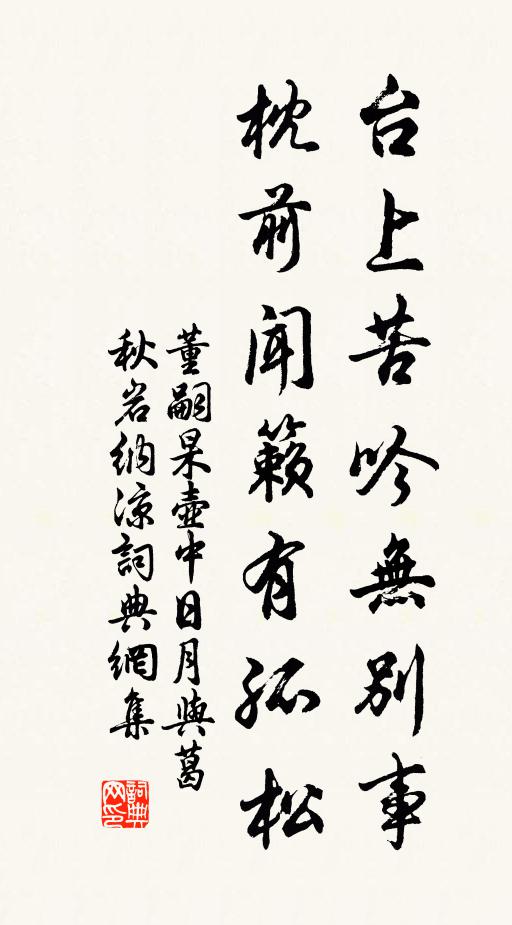 台上苦吟無別事
枕前聞籟有孤松
董嗣杲壺中日月與葛
秋岩納凉詞典網集
詞典网印